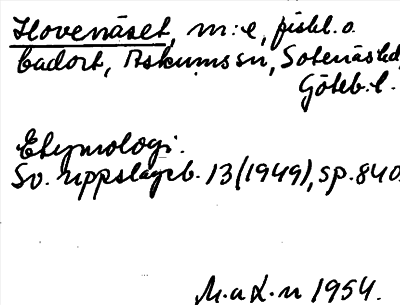 Hovenäset, m:e, fiskl. o.
badort, Askums sn, Sotenäs hd,
Göteb. l.
Etymologi.
Sv. uppslagsb. 13 (1949), sp. 840.
M. a L. n 1954.